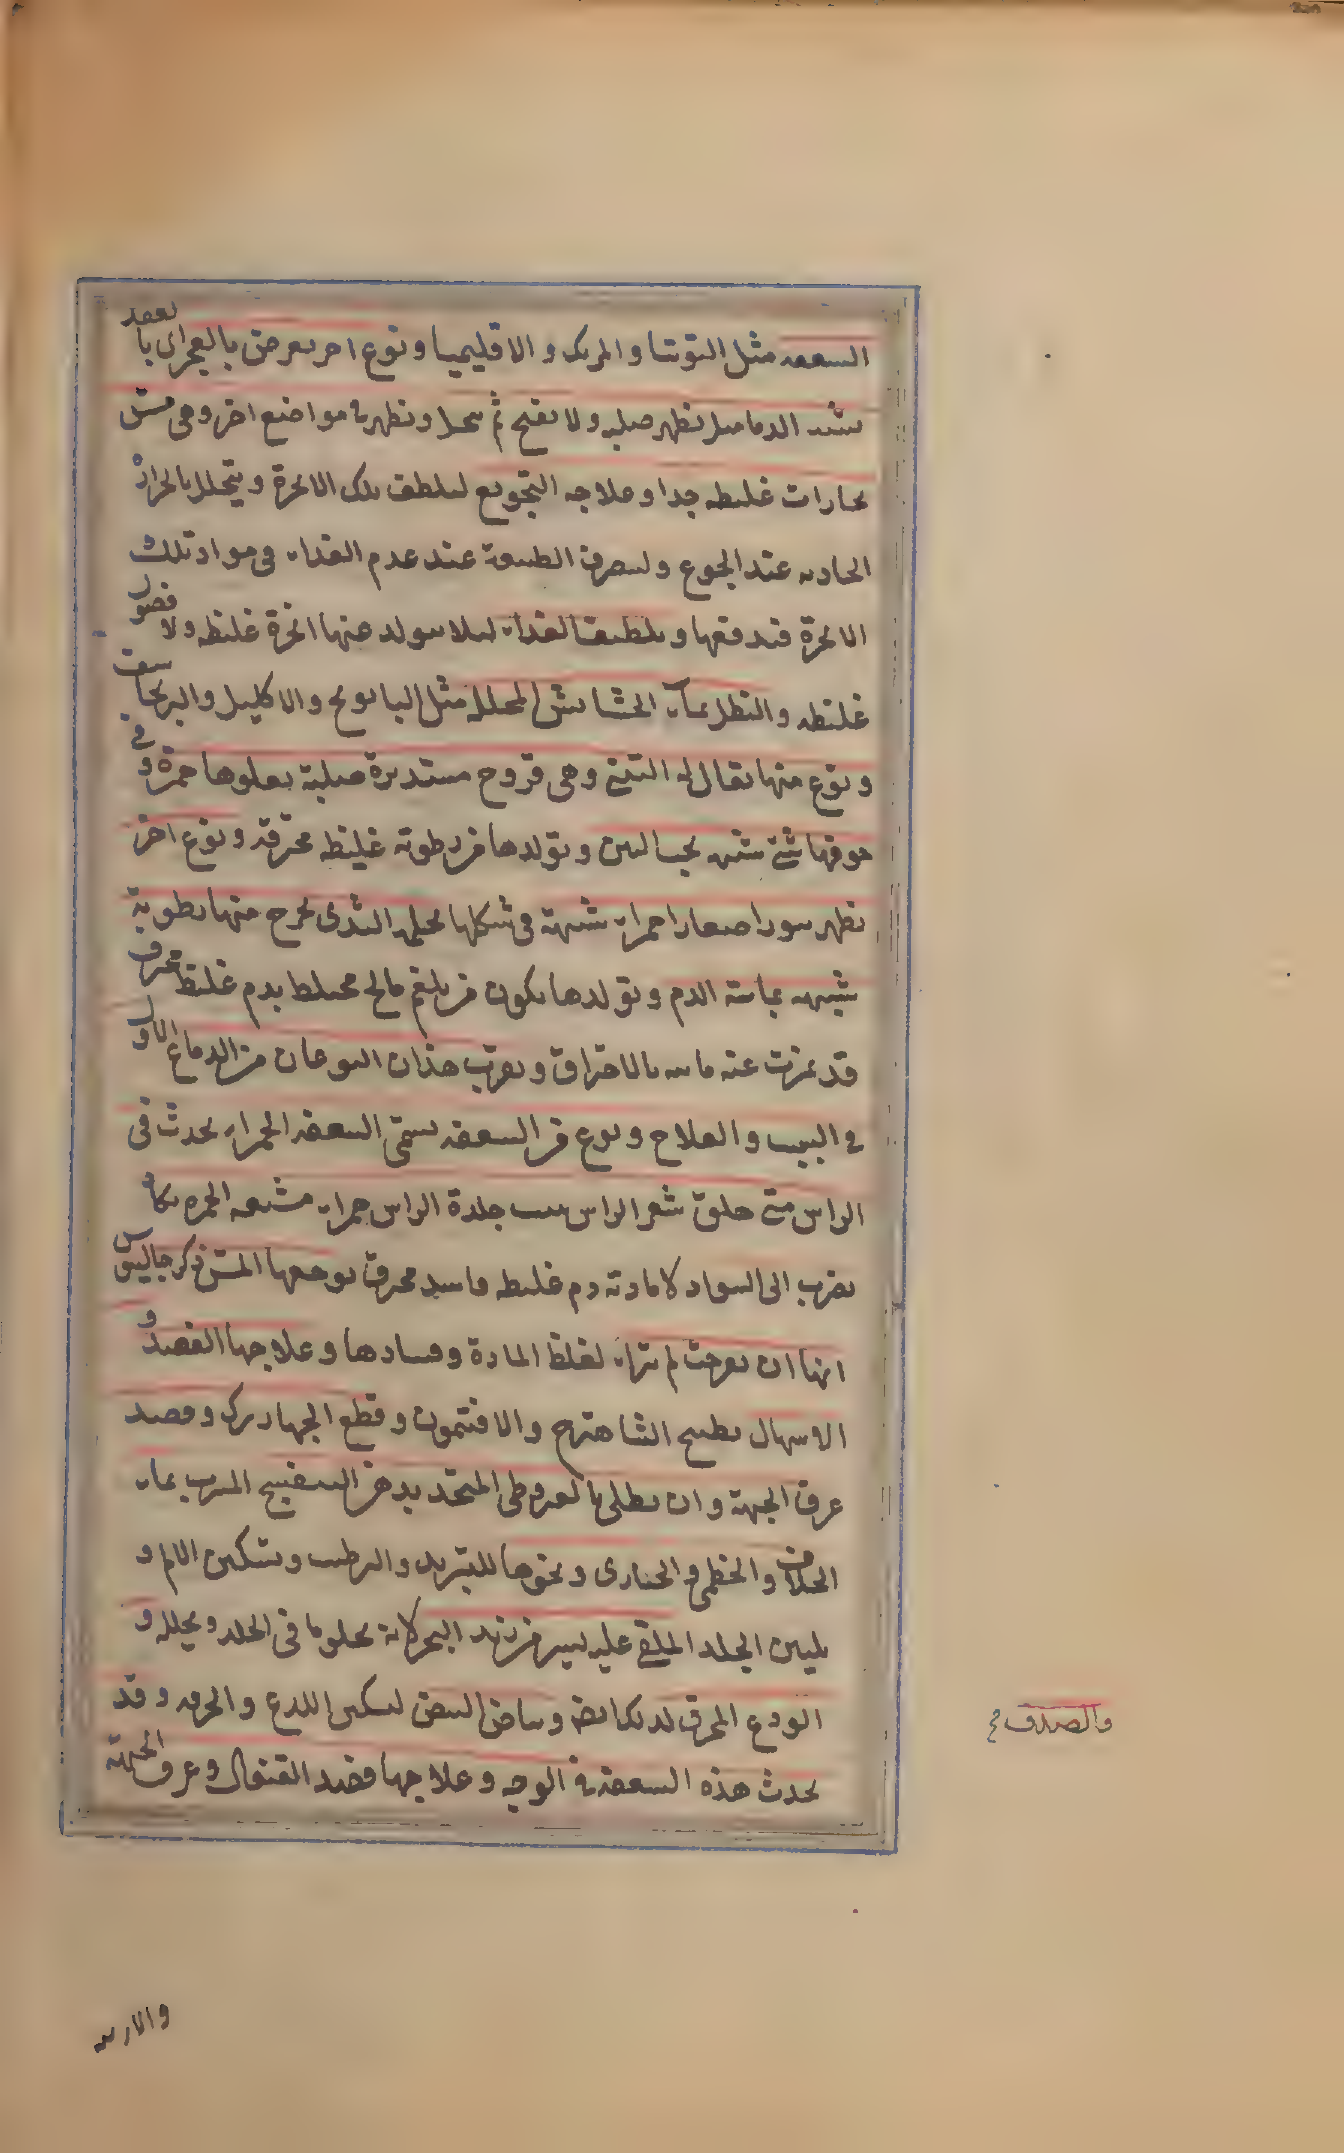 السعفه مثل التوتيا والمرتك والاقليميا ونوع اخر يعرض بالعجز اى بالمقعد
يشبه الدماميل يظهر صلبه ولا يفتح ثم ينحل ويظهر فى مواضع اخر وهى من
بخارات غليظه جدا وعلاجه التجويع لتلطف تلك الابخرة ويتحلل بالحرارة
الحادثه عند الجوع ولتصرف الطبيعة عند عدم الغذاء فى مواد تلك
الابخرة فتدفعها وتلطيف الغذاء لئلا يتولد منها ابخرة غليظه ولا فضول
غليظه والنطل بماء الحشائش المحلله مثل البابونج والاكليل والبرنجاسف
ونوع منها يقال له التينى وهى قروح مستديرة صلبة يعلوها حمرة وفى
جوفها شئ شبيه بحب التين وتولدها من رطوبة غليظه محترقه ونوع اخر
يظهر بثورا صغارا حمراء شبيهة فى شكلها بحلمه الثدى يخرج منها رطوبة
شبيهه بمائية الدم وتولدها يكون من بلغم مالح مختلط بدم غليظ محترق
قد تميزت عنه مائيته بالاحتراق ويقرب هذان النوعان من الدماغ الاول
فى السبب والعلاج ونوع من السعفه يسمى السعفه الحمراء يحدث فى
الراس متى حلق شعر الراس جلدة الراس حمراء مشبعه الحمره يكاد
يضرب الى السواد لان مادته دم غليظه فاسد محترق يوجعها المس ذكر جالينوس
انها ان تقرحت لم تبراء لغلظ المادة وفسادها وعلاجها الفصد و
الاسهال بطبيخ الشاهترج والافتيمون وقطع الجهاررك وفصد
عرق الجبهة وان يطلى بالقيروطى المتخذ بدهن البنفسج المشرب بماء
الخلاف والخطمى والخبازى ونحوها للتبريد والترطيب وتسكين الالم و
تليين الجلد الملقى عليه يسير من زبد البحر لانه يجلو ما فى الجلد ويحلله و
الودع المحرق لذلك ايضا وبياض البيض لتسكين اللذع والحرقه وقد
يحدث هذه السعفة فى الوجه وعلاجها فصد القيفال وعرق الجبهة
والصدف صح
والارنبه